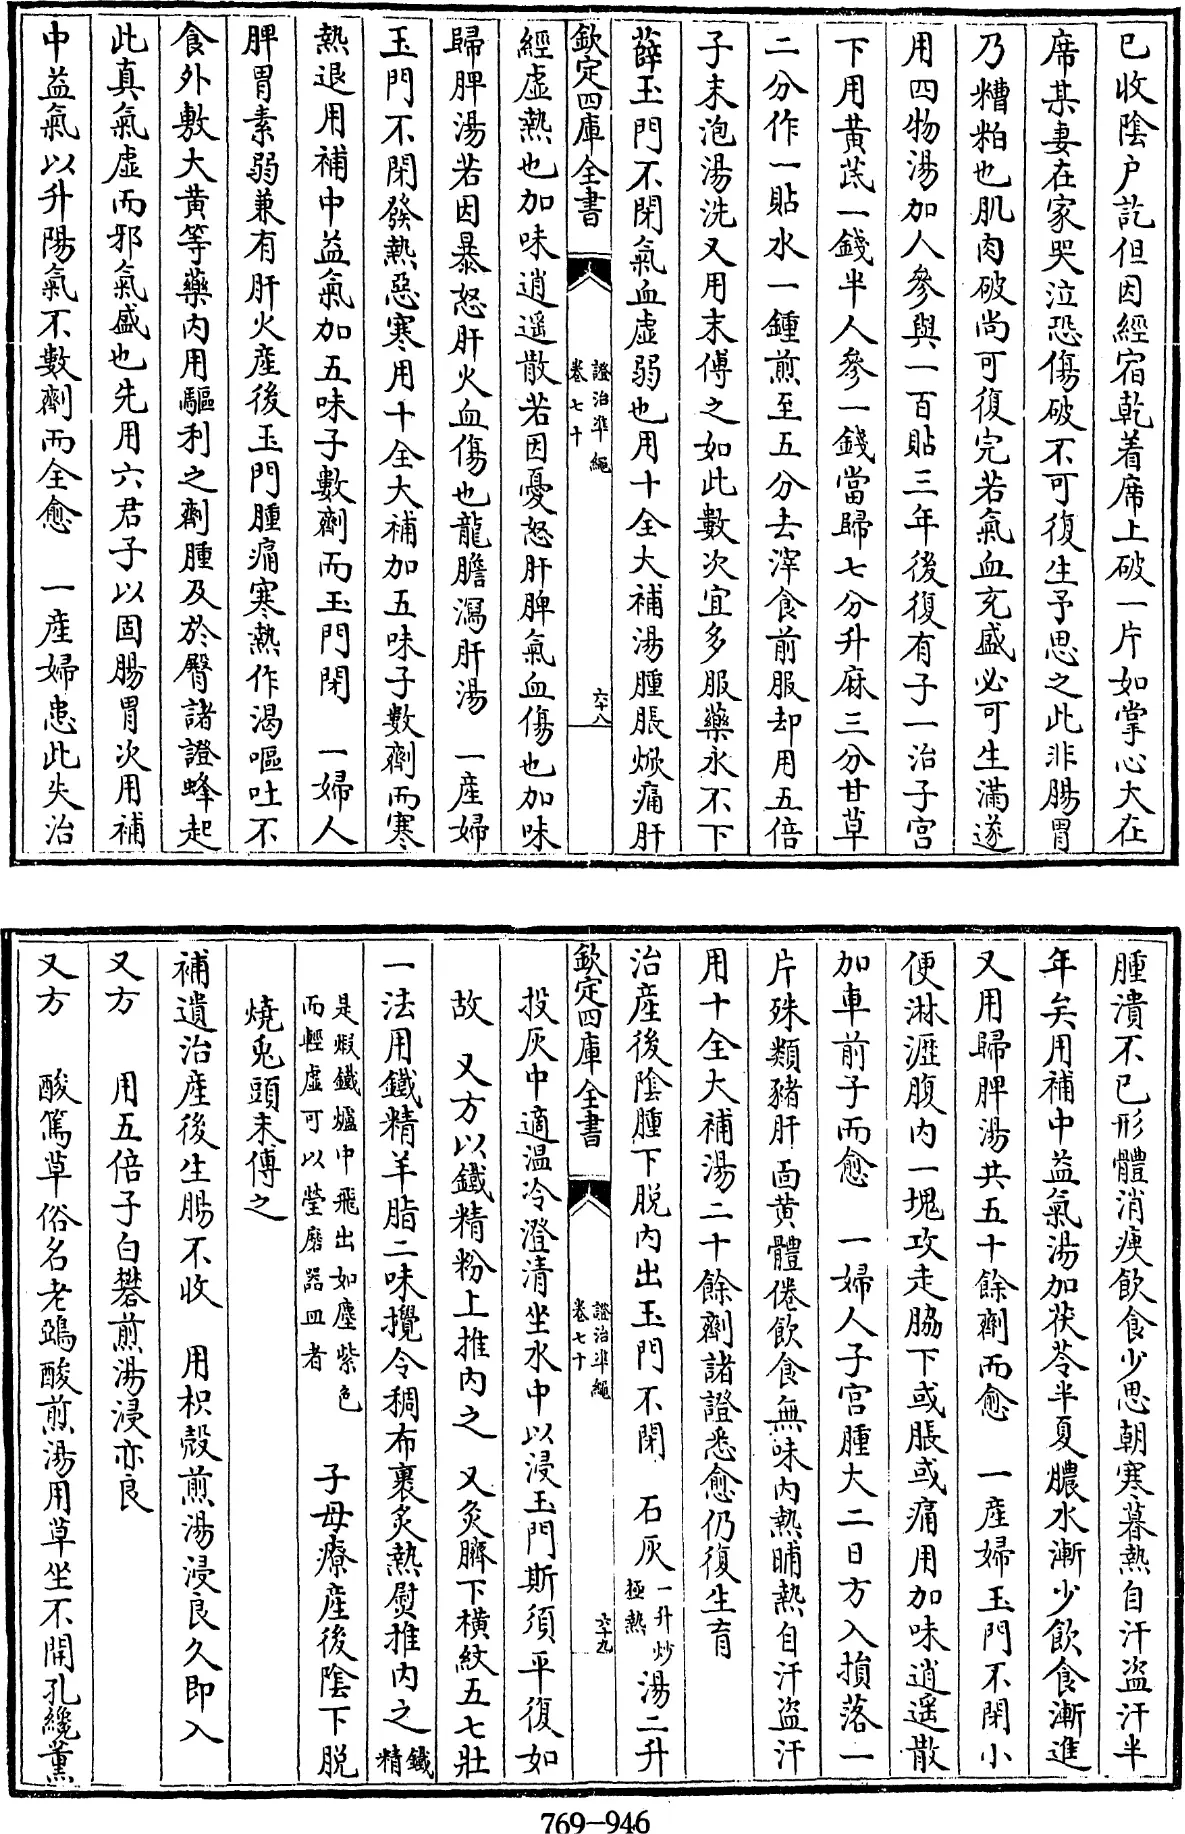 已收陰户訖但因經宿乾着席上破一片如掌心大在
席其妻在家哭泣恐傷破不可復生予思之此非腸胃
乃糟粕也肌肉破尚可復完若氣血充盛必可生滿遂
用四物湯加人參與一百貼三年後復有子一治子宮
下用黃茋一錢半人參一錢當歸七分升麻三分甘草
二分作一貼水一鍾煎至五分去滓食前服却用五倍
子末泡湯洗又用末傅之如此數次宜多服藥永不下
薛玉門不閉氣血虛弱也用十全大補湯腫脹焮痛肝
欽定四庫全書
證治準繩
卷七十
六十八
經虛熱也加味逍遥散若因憂怒肝脾氣血傷也加味
歸脾湯若因暴怒肝火血傷也龍膽瀉肝湯　一產婦
玉門不閉發熱惡寒用十全大補加五味子數劑而寒
熱退用補中益氣加五味子數劑而玉門閉　一婦人
脾胃素弱兼有肝火產後玉門腫痛寒熱作渴嘔吐不
食外敷大黃等藥内用驅利之劑腫及於臀諸證蜂起
此真氣虛而邪氣盛也先用六君子以固腸胃次用補
中益氣以升陽氣不數劑而全愈　一產婦患此失治
腫潰不已形體消瘦飲食少思朝寒暮熱自汗盜汗半
年矣用補中益氣湯加茯苓半夏膿水漸少飲食漸進
又用歸脾湯共五十餘劑而愈　一產婦玉門不閉小
便淋瀝腹内一塊攻走脇下或脹或痛用加味逍遥散
加車前子而愈　一婦人子宮腫大二日方入損落一
片殊類豬肝面黄體倦飲食無味内熱晡熱自汗盜汗
用十全大補湯二十餘劑諸證悉愈仍復生育
治產後陰腫下脱内出玉門不閉　石灰一升炒極熱湯二升
欽定四庫全書
證治準繩
卷七十
六十九
投灰中適温冷澄清坐水中以浸玉門斯須平復如
故　又方以鐵精粉上推内之　又灸臍下横紋五七壯
一法用鐵精羊脂二味攪令稠布裹炙熱熨推内之鐵精
是煅鐵爐中飛出如塵紫色而輕虛可以瑩磨器皿者　子母療產後陰下脱
燒兎頭末傅之
補遺治產後生腸不收　用枳殻煎湯浸良久即入
又方　用五倍子白礬煎湯浸亦良
又方　酸䓣草俗名老鴉酸煎湯用草坐不開孔纔薰
769-946